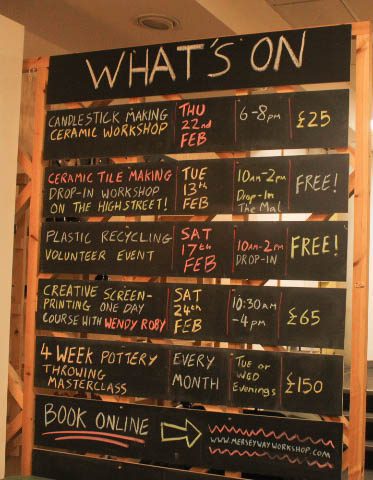 WHAT'S ON
CANDLESTICK MAKING
CERAMIC WORKSHOP
THU
22nd
FEB
6-8pm
£25
CERAMIC TILE MAKING
DROP-IN WORKSHOP
ON THE HIGHSTREET!
TUE
13th
FEB
10am-2pm
Drop-In
The Mal
FREE!
PLASTIC RECYCLING
VOLUNTEER EVENT
SAT
17th
FEB
10am-2pm
DROP-IN
FREE!
CREATIVE SCREEN-
PRINTING ONE DAY
COURSE WITH WENDY ROBY
SAT
24th
FEB
10:30am
-4pm
£65
4 WEEK POTTERY
THROWING
MASTERCLASS
EVERY
MONTH
Tue or
WED
Evenings
£150
BOOK ONLINE
WWW.MERSEYWAYWORKSHOP.COM